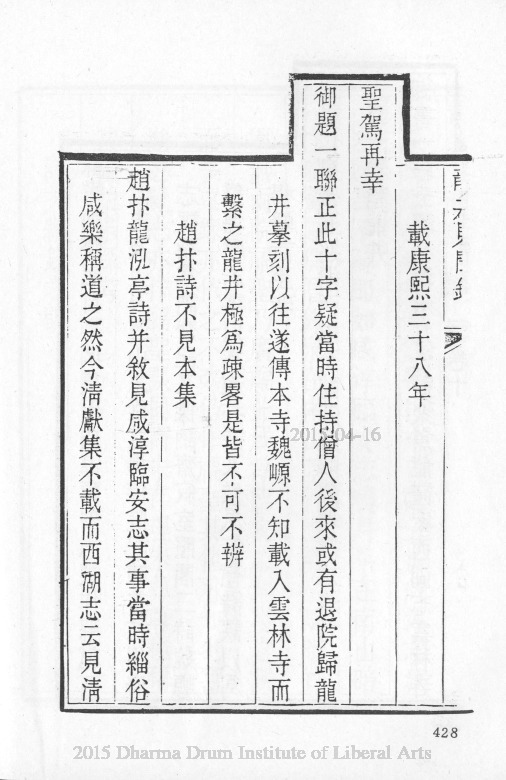 載康熙三十八年
聖駕再幸
御題一聯正此十字疑當時住持僧人後來或有退院歸龍
井摹刻以往遂傳本寺魏㟲不知載入雲林寺而
繫之龍井極爲疎畧是皆不可不辨
趙抃詩不見本集
趙抃龍泓亭詩并敘見咸淳臨安志其事當時緇俗
咸樂稱道之然今清獻集不載而西湖志云見清
2015-04-16
428
2015 Dharma Drum Institute of Liberal Arts